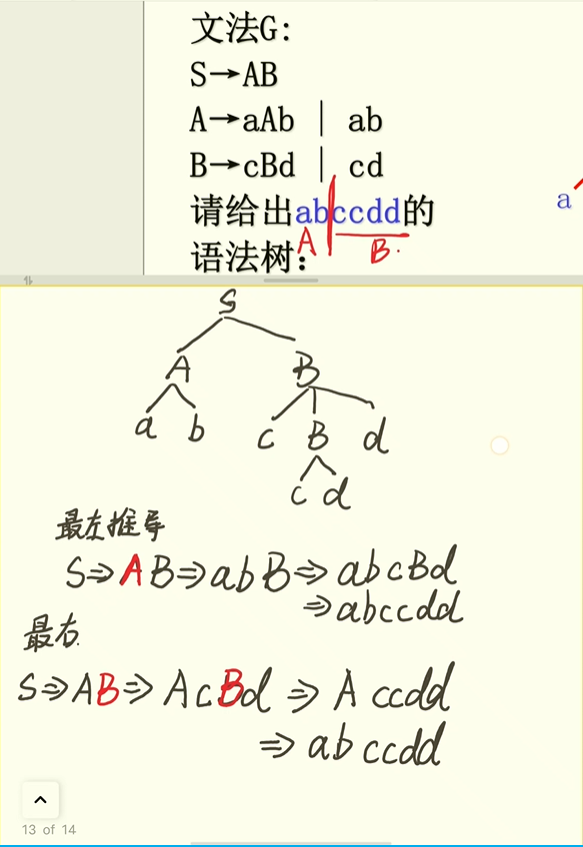 文法G:
S→AB
A→aAb | ab
B→cBd | cd
请给出abccdd的
a
语法树:
A B.
S
A B
a b c B d
c d
最左推导
S⇒AB⇒abB⇒abcBd
⇒abccdd
最右.
S⇒AB⇒AcBd⇒Accdd
⇒abccdd
13 of 14